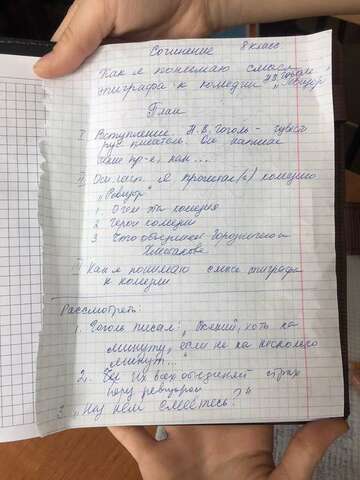 Сочинение 8 класс
Как я понимаю смысл
эпиграфа к комедии Н.В. Гоголя „Ревизор"
План
I Вступление. Н.В. Гоголь -
рус писатель. Он написал
такие пр-я, как...
II Осн. часть. Я прочитал(а) комедию
„Ревизор"
1 О чем эта комедия
2 Герои комедии
3 Что объединяет Городничего и
Хлестакова
III Как я понимаю смысл эпиграфа
к комедии
Рассмотреть:
1. Гоголь писал: „Всякий, хоть на
минуту, если не на несколько
минут..."
2. Их всех объединяет страх
перед ревизором
3. „Над кем смеетесь?"